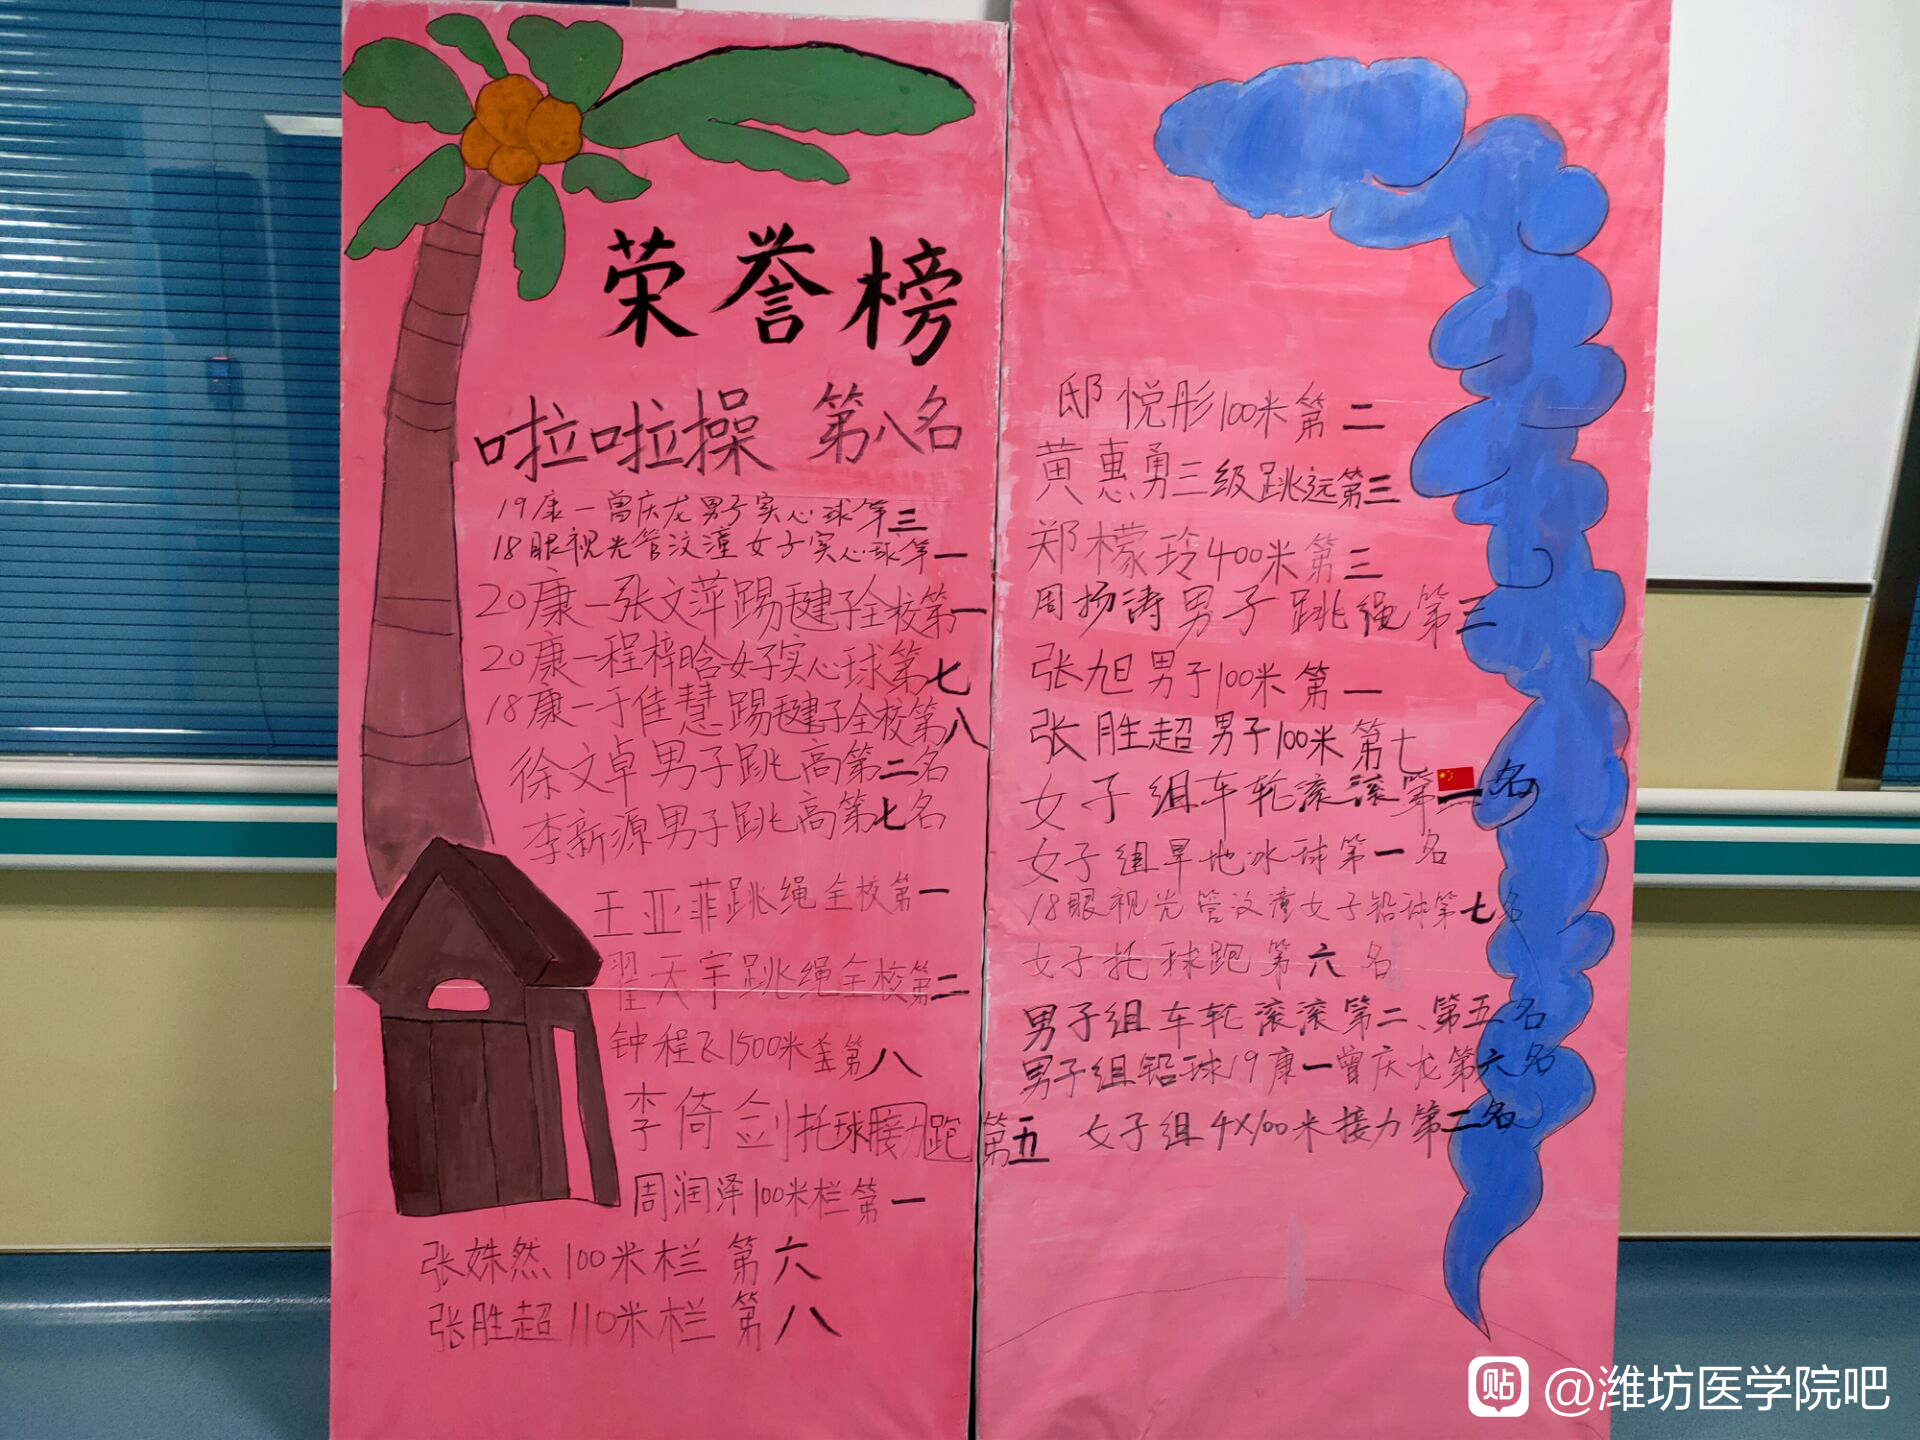 荣誉榜
啦啦操 第八名
19康一曾庆龙男子实心球第三
18眼视光管汶潼女子实心球第一
20康一张文萍踢毽子全校第一
20康一程梓晗女子实心球第七
18康一于佳慧踢毽子全校第八
徐文卓男子跳高第二名
李新源男子跳高第七名
王亚菲跳绳全校第一
翟天宇跳绳全校第二
钟程飞1500米第八
李倚剑托球接力跑第五
周润泽100米栏第一
张姝然100米栏第六
张胜超110米栏第八
邸悦彤100米第二
黄惠勇三级跳远第三
郑檬玲400米第三
周扬涛男子跳绳第三
张旭男子100米第一
张胜超男子100米第七
女子组车轮滚滚第一名
女子组旱地冰球第一名
18眼视光管汶潼女子铅球第七名
女子托球跑第六名
男子组车轮滚滚第二、第五名
男子组铅球19康一曾庆龙第六名
女子组4X100米接力第二名
贴 @潍坊医学院吧